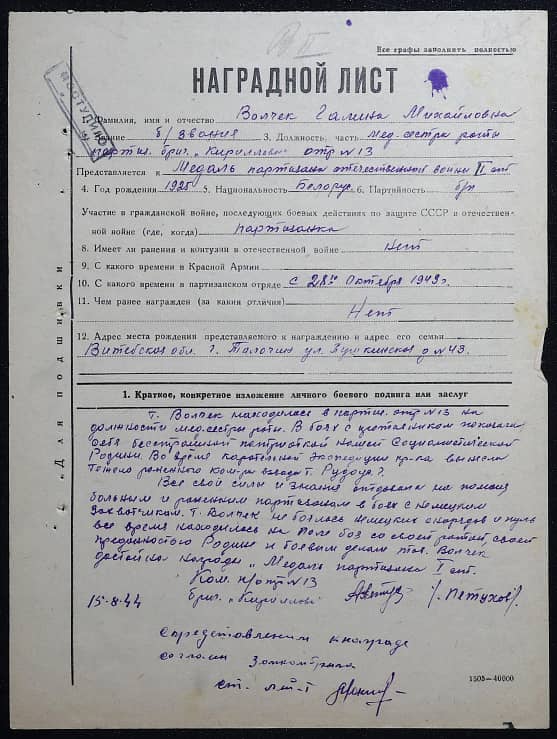 Все графы заполнять полностью
НАГРАДНОЙ ЛИСТ
Фамилия, имя и отчество Волчек Галина Михайловна
Звание б/звания 3. Должность, часть мед-сестра роты
партиз. бриг. „Кириллова" отр №13
Представляется к Медаль партизана отечественной войны II ст
4. Год рождения 1925 5. Национальность Белорус 6. Партийность б/п
Участие в гражданской войне, последующих боевых действиях по защите СССР и отечествен-
ной войне (где, когда) партизанка
8. Имеет ли ранения и контузии в отечественной войне Нет
9. С какого времени в Красной Армии
10. С какого времени в партизанском отряде с 28го Октября 1943 г.
11. Чем ранее награжден (за какия отличия) Нет
12. Адрес места рождения представляемого к награждению и адрес его семьи
Витебская обл. г. Толочин ул. Пушкинская д №43.
Для подшивки
1. Краткое, конкретное изложение личного боевого подвига или заслуг
Т. Волчек находилась в партиз. отр №13 на
должности мед.сестры роты. В боях с показала
себя бесстрашной патриоткой нашей Социалистической
Родины. Во время карательной экспедиции пр-ка вынесла
тяжело раненного ком-ра взвода т.
Все свои силы и знания отдавала на помощь
больным и раненным партизанам в боях с немецким
захватчикам. Т. Волчек не боялась немецких снарядов и пуль
все время находилась на поле боя со своей ротой, своей
преданностью Родине и боевым делам тов. Волчек
достойна награды „Медаль партизана I ст.
Ком. п/отр №13
бриг. „Кириллова" /Петухов/.
15.8.44
С представлением к награде
согласен
ст. лей-т
1505—40000